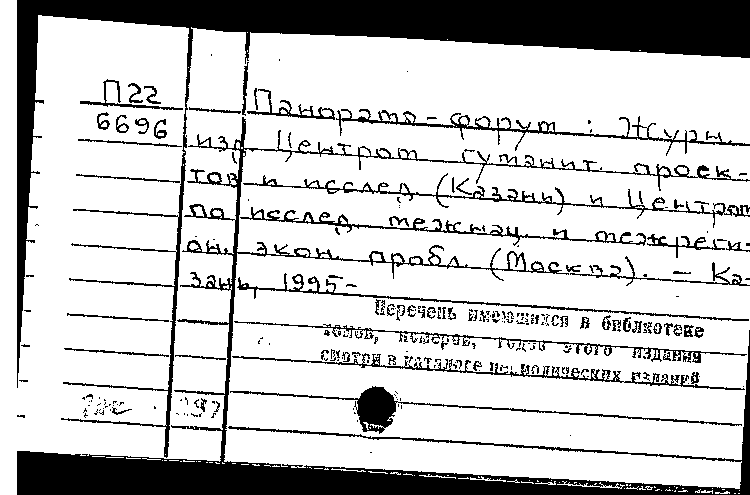 П22
6696
Панорама-форум : Журн.
изд. Центром гуманит. проек-
тов и исслед. (Казань) и Центром
по исслед. межнац. и межреги-
он. экон. пробл. (Москва). - Ка-
зань, 1995-
Перечень имеющихся в библиотеке
томов, номеров, годов этого издания
смотри в каталоге периодических изданий